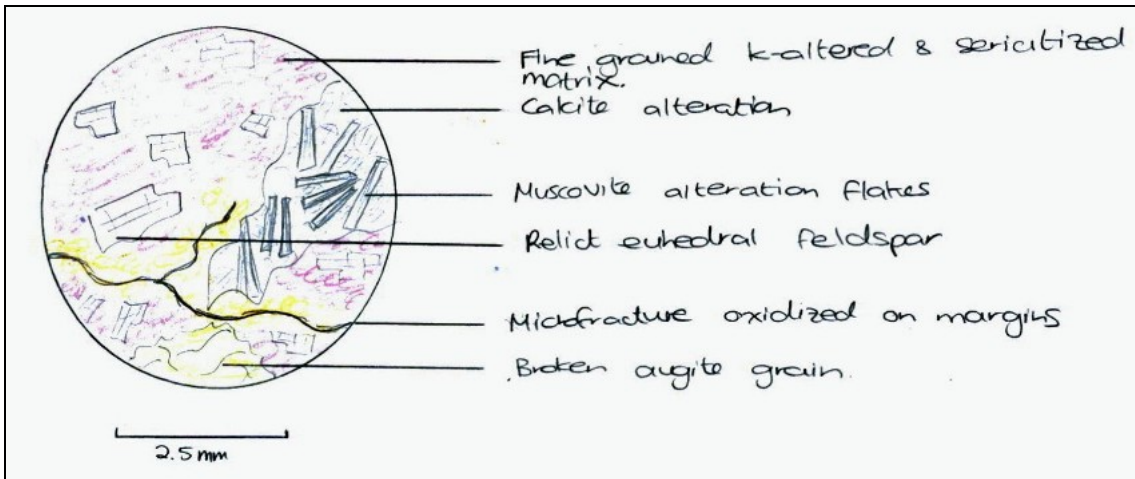 Fine grained k-altered & sericitized
matrix.
Calcite alteration
Muscovite alteration flakes
Relict euhedral feldspar
Microfracture oxidized on margins
Broken augite grain.
2.5mm